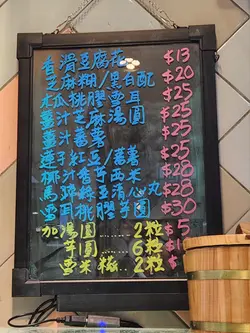 香滑豆腐花 $13
芝麻糊/黑白配 $20
木瓜桃膠雪耳 $25
薑汁芝麻湯圓 $25
薑汁蕃薯 $25
蓮子紅豆/蕃薯 $25
椰汁香芋西米 $28
馬蹄綠豆清心丸 $28
雪耳桃膠 $30
加湯圓...2粒 $5
芋圓...6粒
雪米糍..2粒